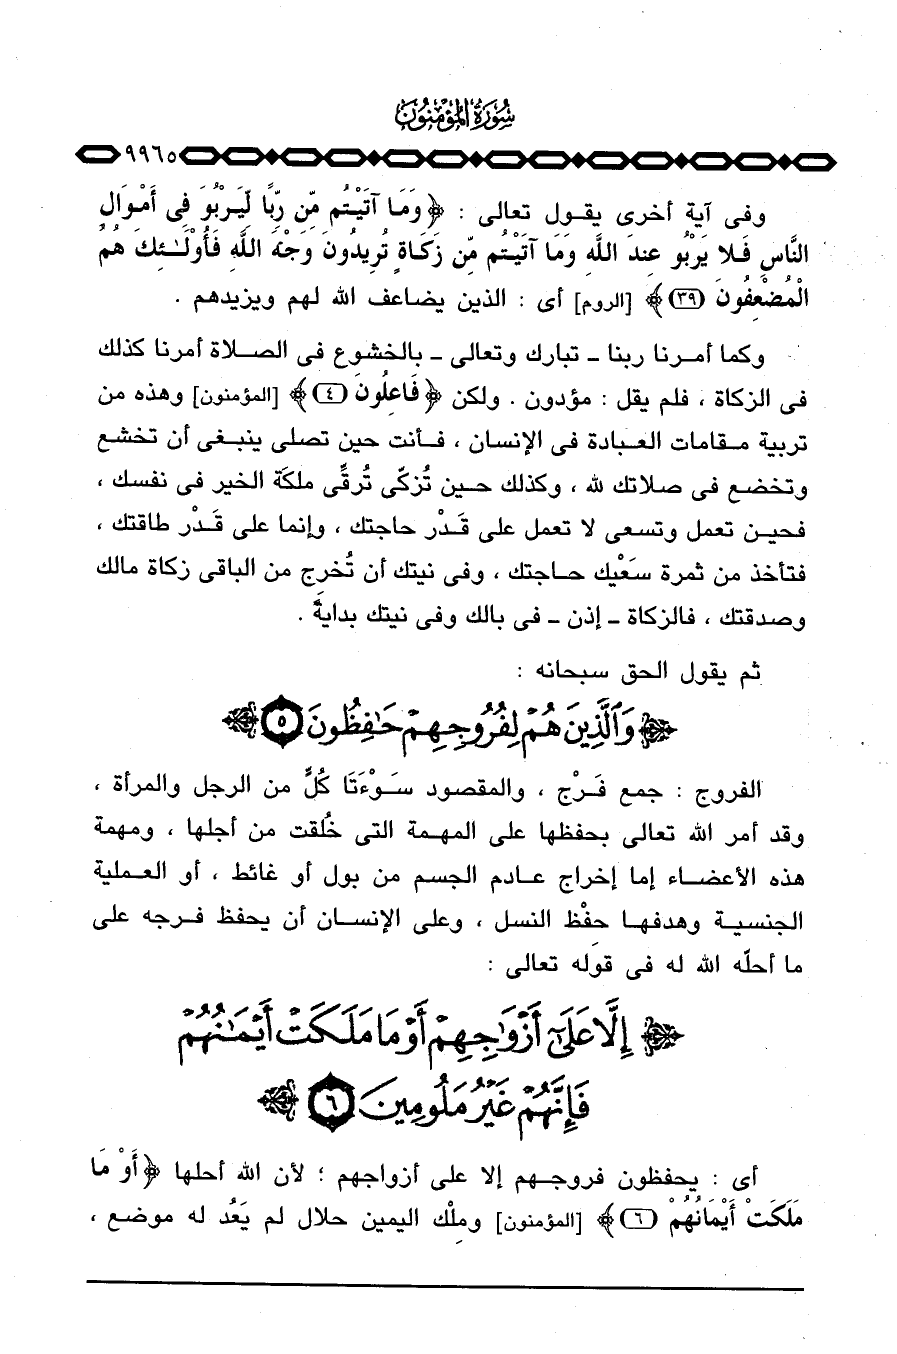 سُورَةُ المُؤْمِنُونَ
٩٩٦٥
وفى آية أخرى يقول تعالى : ﴿ وَمَا آتَيْتُم مِّن رِّبًا لِّيَرْبُوَ فِي أَمْوَالِ
النَّاسِ فَلا يَرْبُو عِندَ اللَّهِ وَمَا آتَيْتُم مِّن زَكَاةٍ تُرِيدُونَ وَجْهَ اللَّهِ فَأُولَـٰئِكَ هُمُ
الْمُضْعِفُونَ (٣٩) ﴾ [الروم] أى : الذين يضاعف الله لهم ويزيدهم .
وكما أمرنا ربنا ـ تبارك وتعالى ـ بالخشوع فى الصلاة أمرنا كذلك
فى الزكاة ، فلم يقل : مؤدون . ولكن ﴿ فَاعِلُونَ (٤) ﴾ [المؤمنون] وهذه من
تربية مقامات العبادة فى الإنسان ، فأنت حين تصلى ينبغى أن تخشع
وتخضع فى صلاتك لله ، وكذلك حين تُزكّى تُرقّى ملكَة الخير فى نفسك ،
فحين تعمل وتسعى لا تعمل على قَدْر حاجتك ، وإنما على قَدْر طاقتك ،
فتأخذ من ثمرة سَعْيك حاجتك ، وفى نيتك أن تُخرج من الباقى زكاة مالك
وصدقتك ، فالزكاة ـ إذن ـ فى بالك وفى نيتك بدايةً .
ثم يقول الحق سبحانه :
وَٱلَّذِينَ هُمْ لِفُرُوجِهِمْ حَـٰفِظُونَ ٥
الفروج : جمع فَرْج ، والمقصود سَوْءَتَا كُلٍّ من الرجل والمرأة ،
وقد أمر الله تعالى بحفظها على المهمة التى خُلقت من أجلها ، ومهمة
هذه الأعضاء إما إخراج عادم الجسم من بول أو غائط ، أو العملية
الجنسية وهدفها حفْظ النسل ، وعلى الإنسان أن يحفظ فرجه على
ما أحلَّه الله له فى قوله تعالى :
إِلَّا عَلَىٰٓ أَزْوَٰجِهِمْ أَوْ مَا مَلَكَتْ أَيْمَـٰنُهُمْ
فَإِنَّهُمْ غَيْرُ مَلُومِينَ ٦
أى : يحفظون فروجهم إلا على أزواجهم ؛ لأن الله أحلها ﴿ أَوْ مَا
مَلَكَتْ أَيْمَانُهُمْ (٦) ﴾ [المؤمنون] وملْك اليمين حلال لم يَعُد له موضع ،